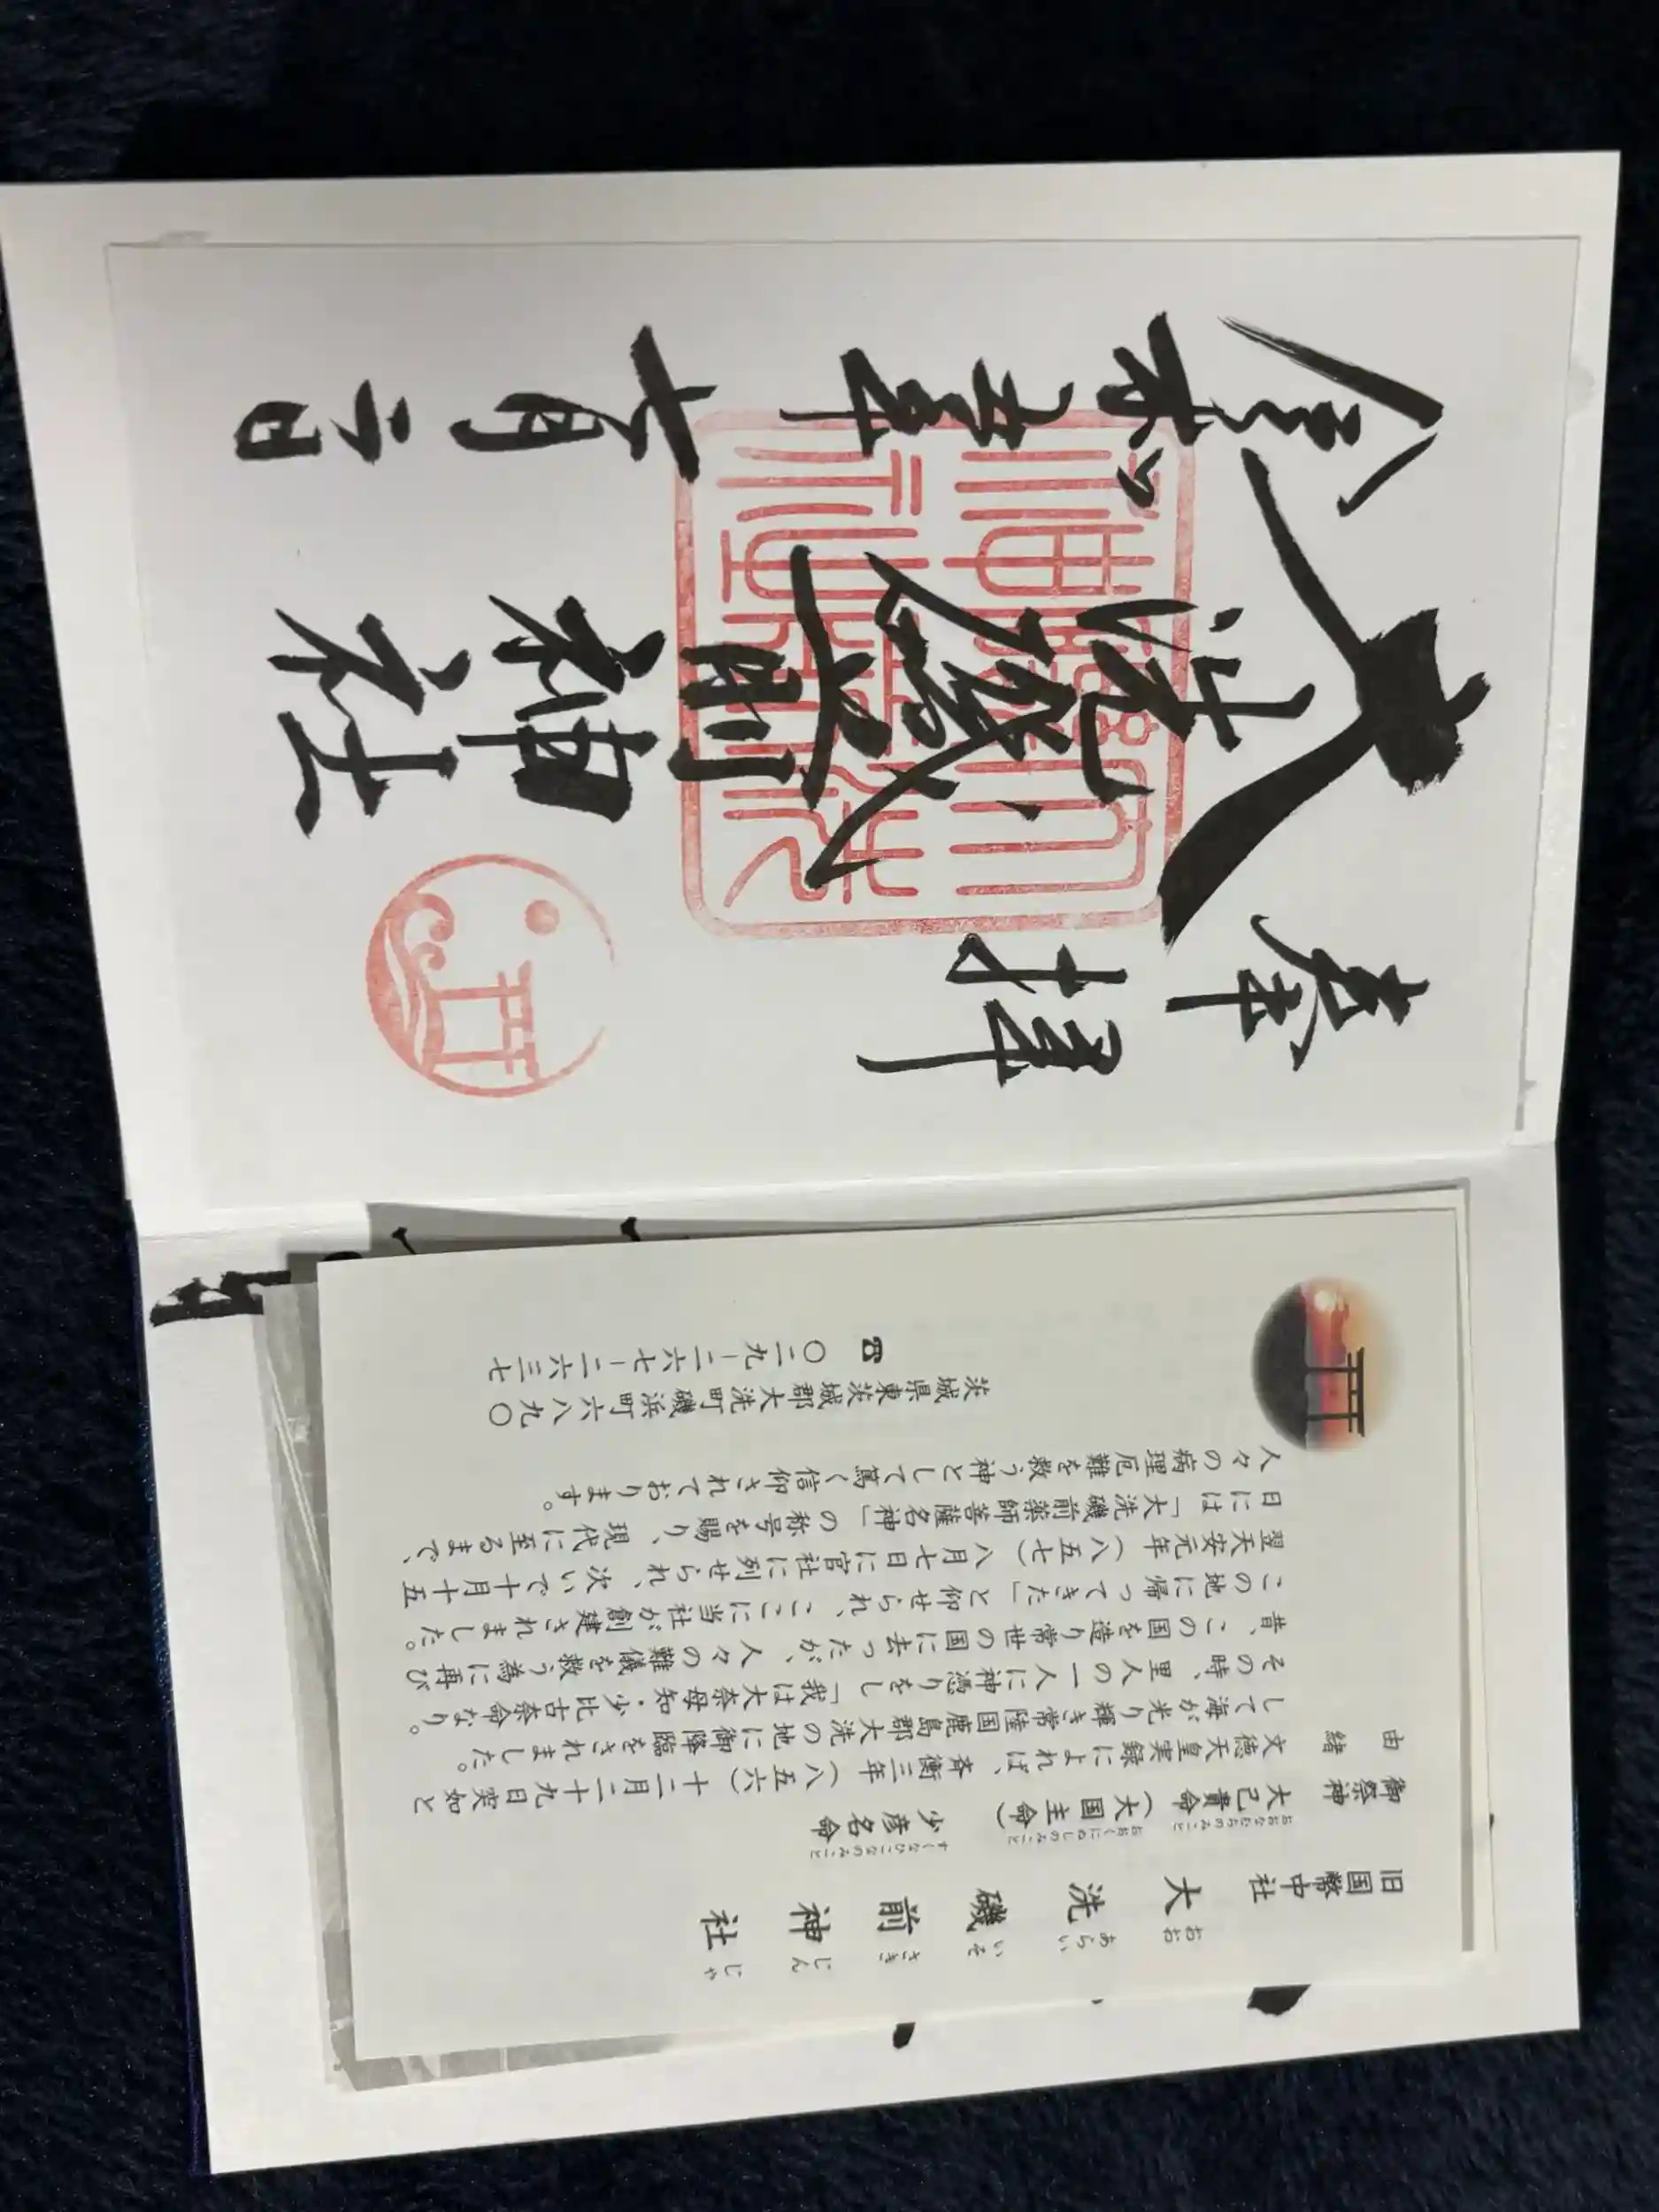 奉拝
大洗磯前神社
令和五年七月二日
月
旧国幣中社 大洗磯前神社
おお あらい いそ さき じん じゃ
御祭神 大己貴命(大国主命) 少彦名命
おおなむちのみこと おおくにぬしのみこと すくなひこなのみこと
由緒 文徳天皇実録によれば、斉衡三年(八五六)十二月二十九日突如と
して海が光り輝き常陸国鹿島郡大洗の地に御降臨をされました。
その時、里人の一人に神憑りをし「我は大奈母知・少比古奈命なり。
昔、この国を造り常世の国に去ったが、人々の難儀を救う為に再び
この地に帰ってきた」と仰せられ、ここに当社が創建されました。
翌天安元年(八五七)八月七日に官社に列せられ、次いで十月十五
日には「大洗磯前薬師菩薩名神」の称号を賜り、現代に至るまで、
人々の病理厄難を救う神として篤く信仰されております。
茨城県東茨城郡大洗町磯浜町六八九〇
☎ 〇二九―二六七―二六三七